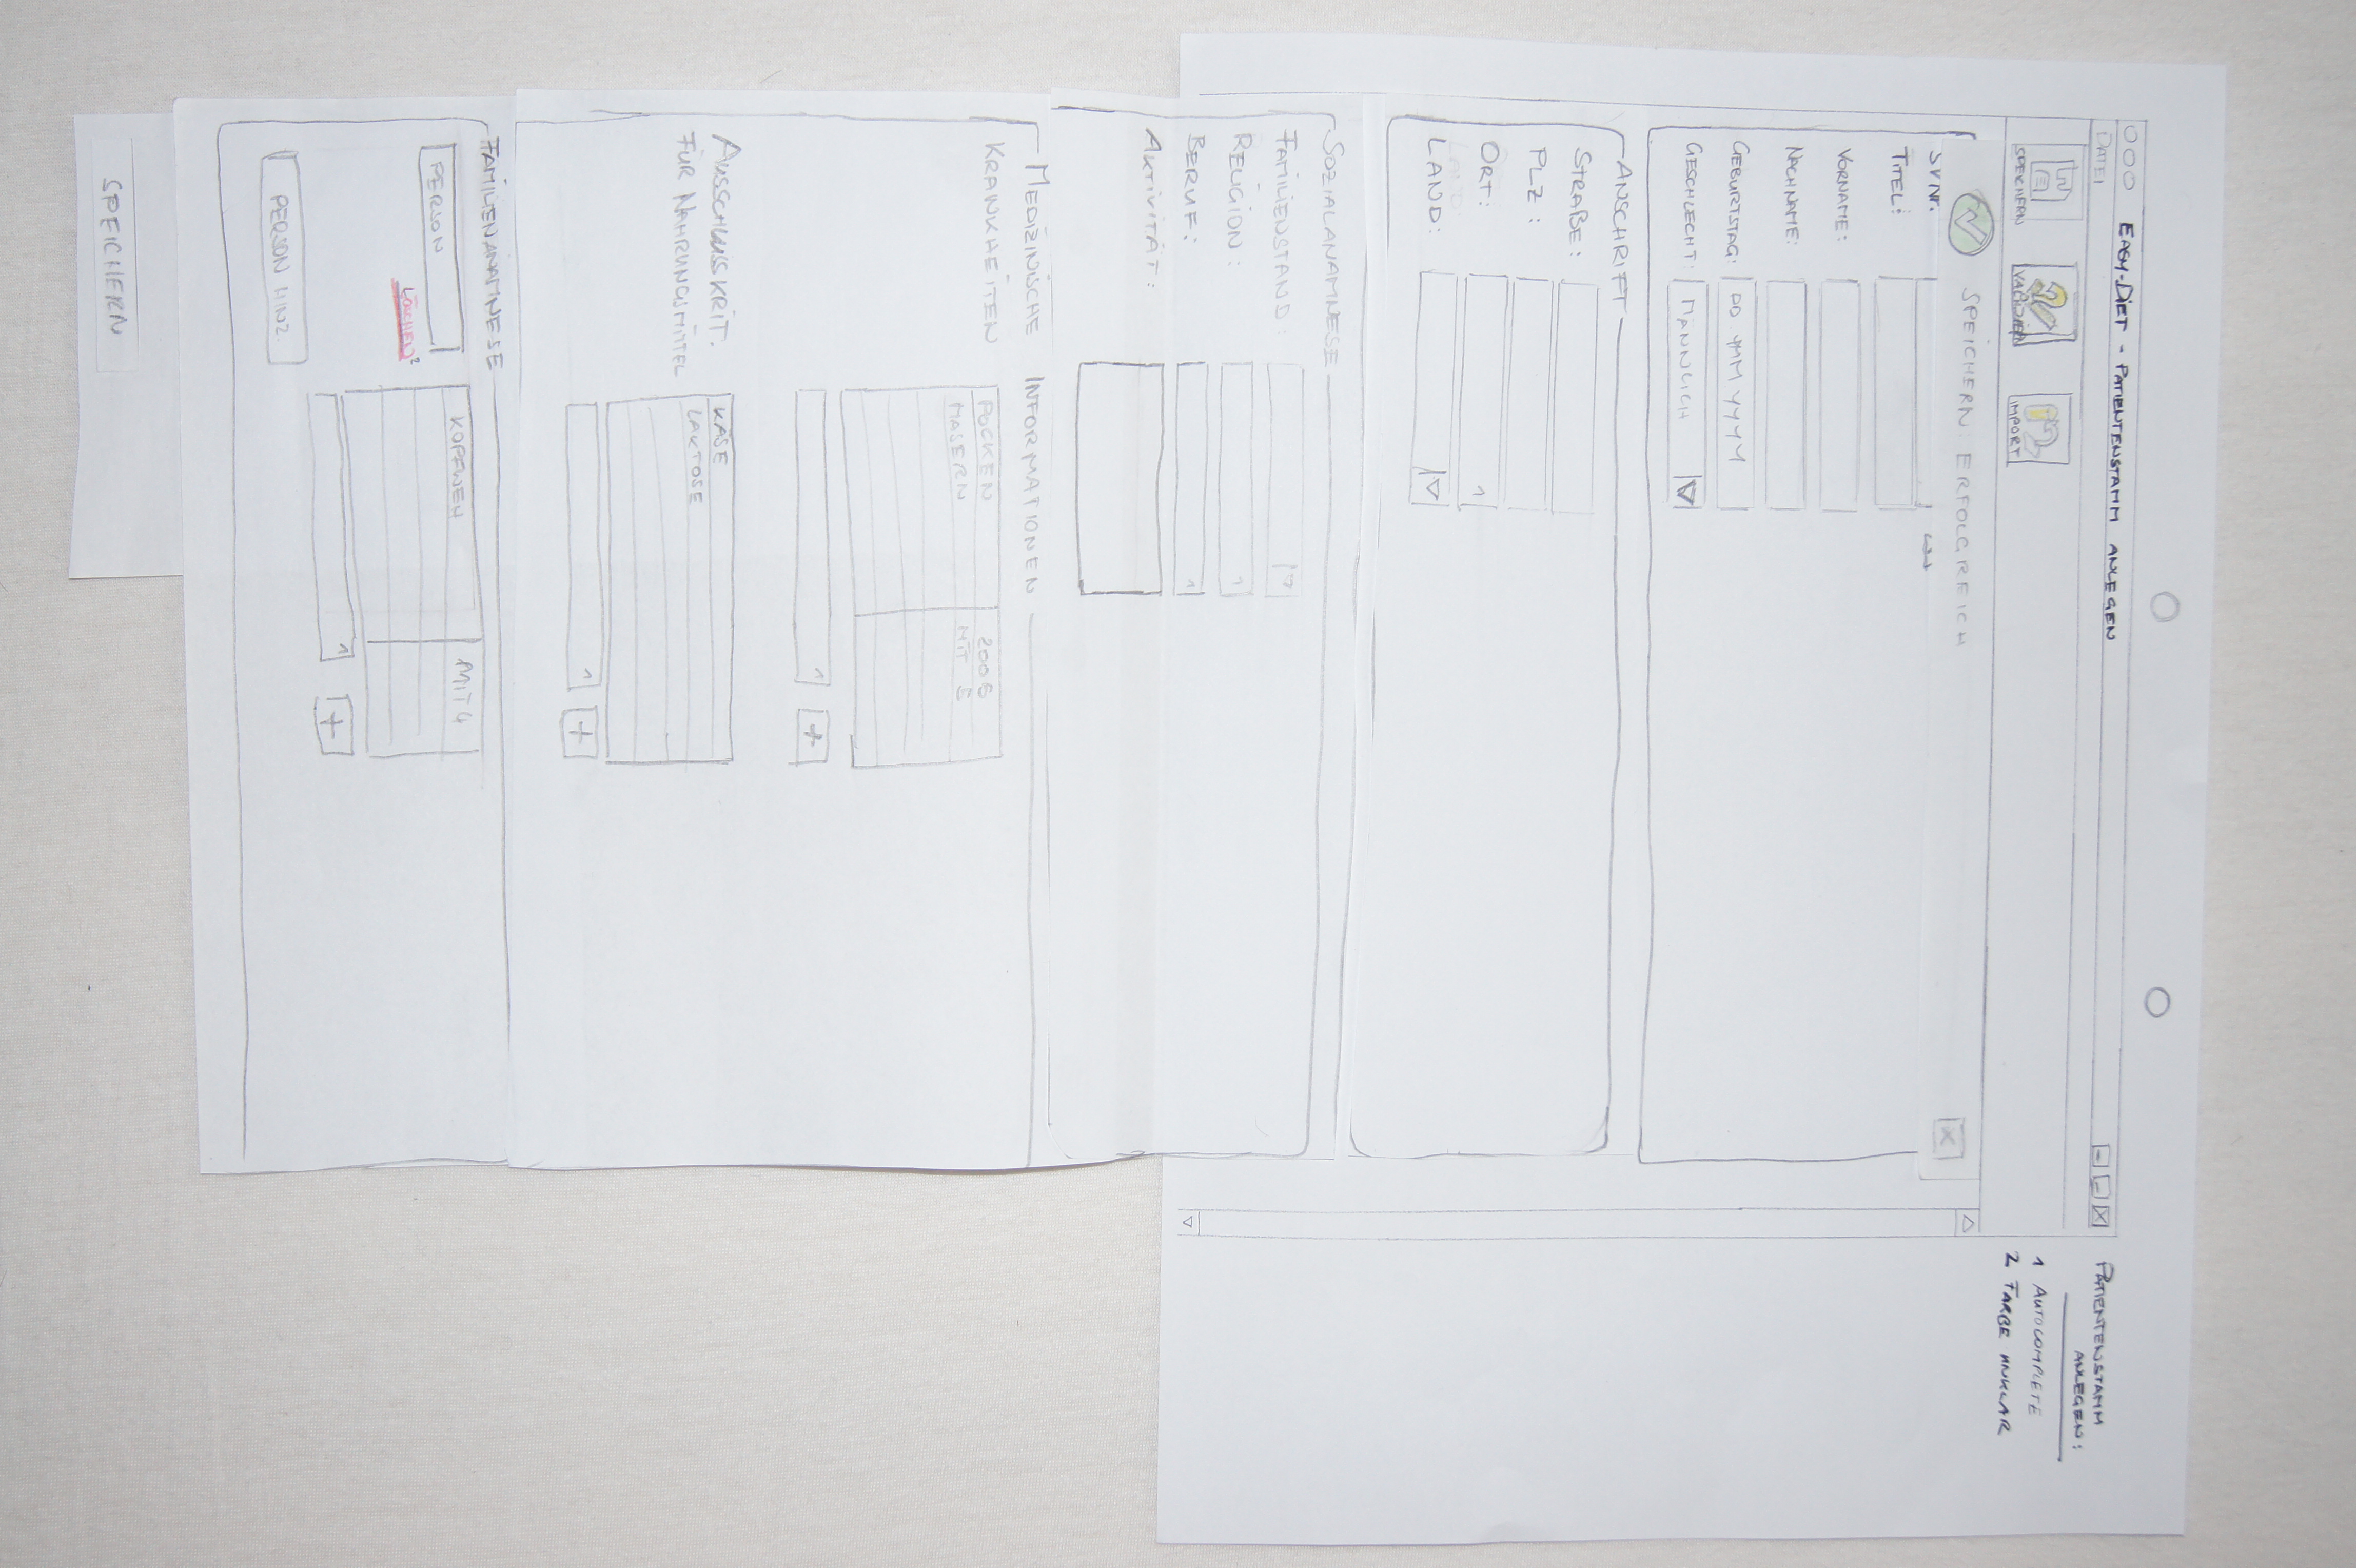 EASY-DIET - PATIENTENSTAMM ANLEGEN
DATEI
SPEICHERN
IMPORT
SPEICHERN: ERFOLGREICH X
SVNR.
TITEL:
VORNAME:
NACHNAME:
GEBURTSTAG: DD.MM YYYY
GESCHLECHT: MÄNNLICH
ANSCHRIFT
STRAßE:
PLZ:
ORT: 1
LAND:
SOZIALANAMNESE
FAMILIENSTAND:
RELIGION: 1
BERUF: 1
AKTIVITÄT:
MEDIZINISCHE INFORMATIONEN
KRANKHEITEN POCKEN 2006
MASERN MIT 5
1 +
AUSSCHLUSSKRIT. KÄSE
FÜR NAHRUNGSMITTEL LAKTOSE
1 +
FAMILIENANAMNESE
PERSON KOPFWEH MIT 4
LÖSCHEN ?
1 +
PERSON HINZ.
SPEICHERN
PATIENTENSTAMM
ANLEGEN:
1 AUTOCOMPLETE
2 FARBE UNKLAR